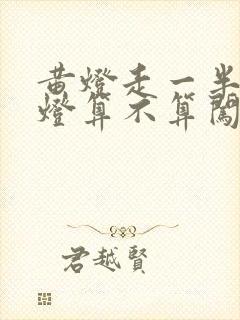 黄燈走一半
燈算不算闖
君越賢